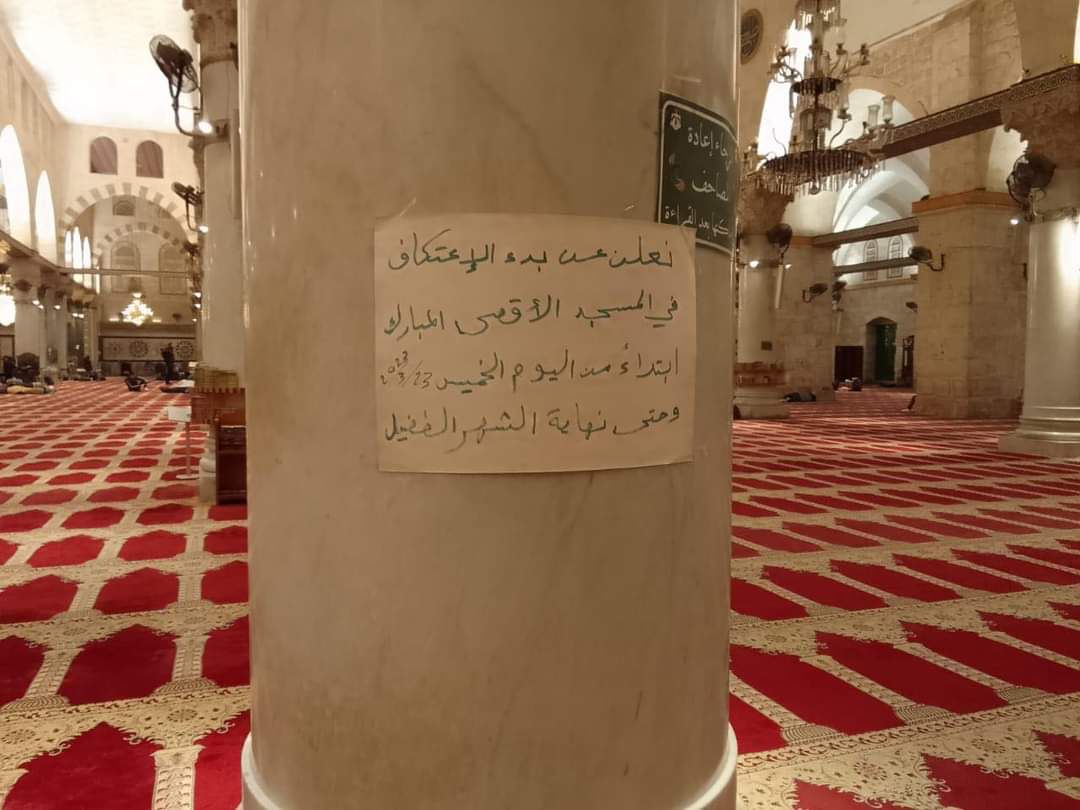 نعلن عن بدء الإعتكاف
في المسجد الأقصى المبارك
ابتداءً من اليوم الخميس 23/3/2023
وحتى نهاية الشهر الفضيل
إعادة
القراءة